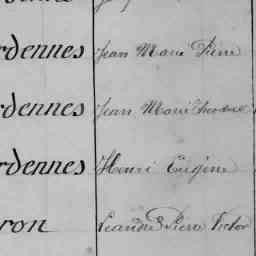 rdennes Jean Marie Pierre
rdennes Jean Marie Theodule
rdennes Henri Eugène
ron Leandre Pierre Victor